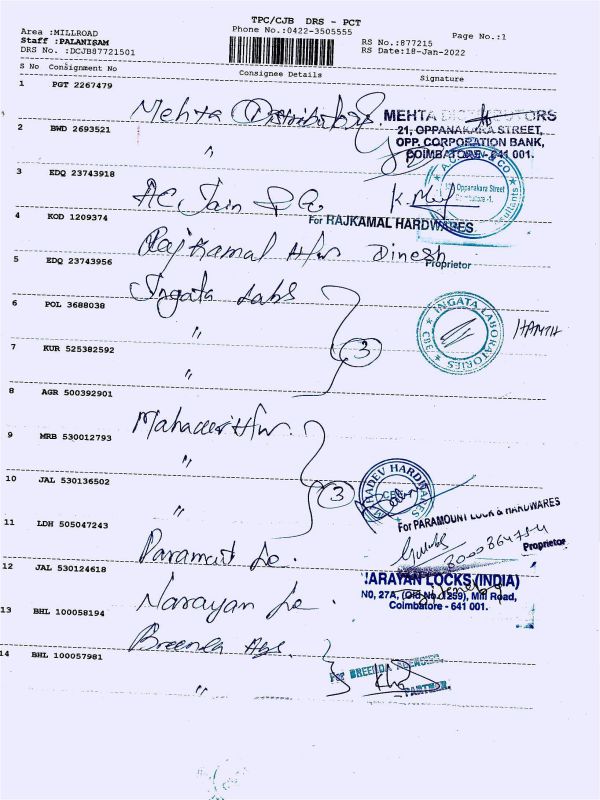 TPC/CJB DRS - PCT
Area :MILLROAD
Phone No.:0422-3505555
Page No.:1
Staff :PALANISAM
RS No.:877215
DRS No. :DCJB87721501
RS Date:18-Jan-2022
S No Consignment No
Consignee Details
Signature
1 PGT 2267479
Mehta Distributors
MEHTA DISTRIBUTORS
21, OPPANAKARA STREET,
OPP. CORPORATION BANK,
COIMBATORE - 641 001.
2 BWD 2693521
"
3 EDQ 23743918
AC Jain
Oppanakara Street
Coimbatore -1.
4 KOD 1209374
For RAJKAMAL HARDWARES
RajKamal H/w Dinesh
Proprietor
5 EDQ 23743956
Ingata Labs
6 POL 3688038
"
INGATA LABORATORIES
CBE
3
7 KUR 525382592
"
8 AGR 500392901
Mahadev H/w.
9 MRB 530012793
"
10 JAL 530136502
"
3
MAHADEV HARDWARES
11 LDH 505047243
Paramount Lo.
For PARAMOUNT LOCK & HARDWARES
Proprietor
12 JAL 530124618
Narayan Lo.
NARAYAN LOCKS (INDIA)
NO, 27A, (Old No. 1259), Mill Road,
Coimbatore - 641 001.
13 BHL 100058194
Breenda Ags.
14 BHL 100057981
"
For BREENDA AGENCIES,
PARTNER.